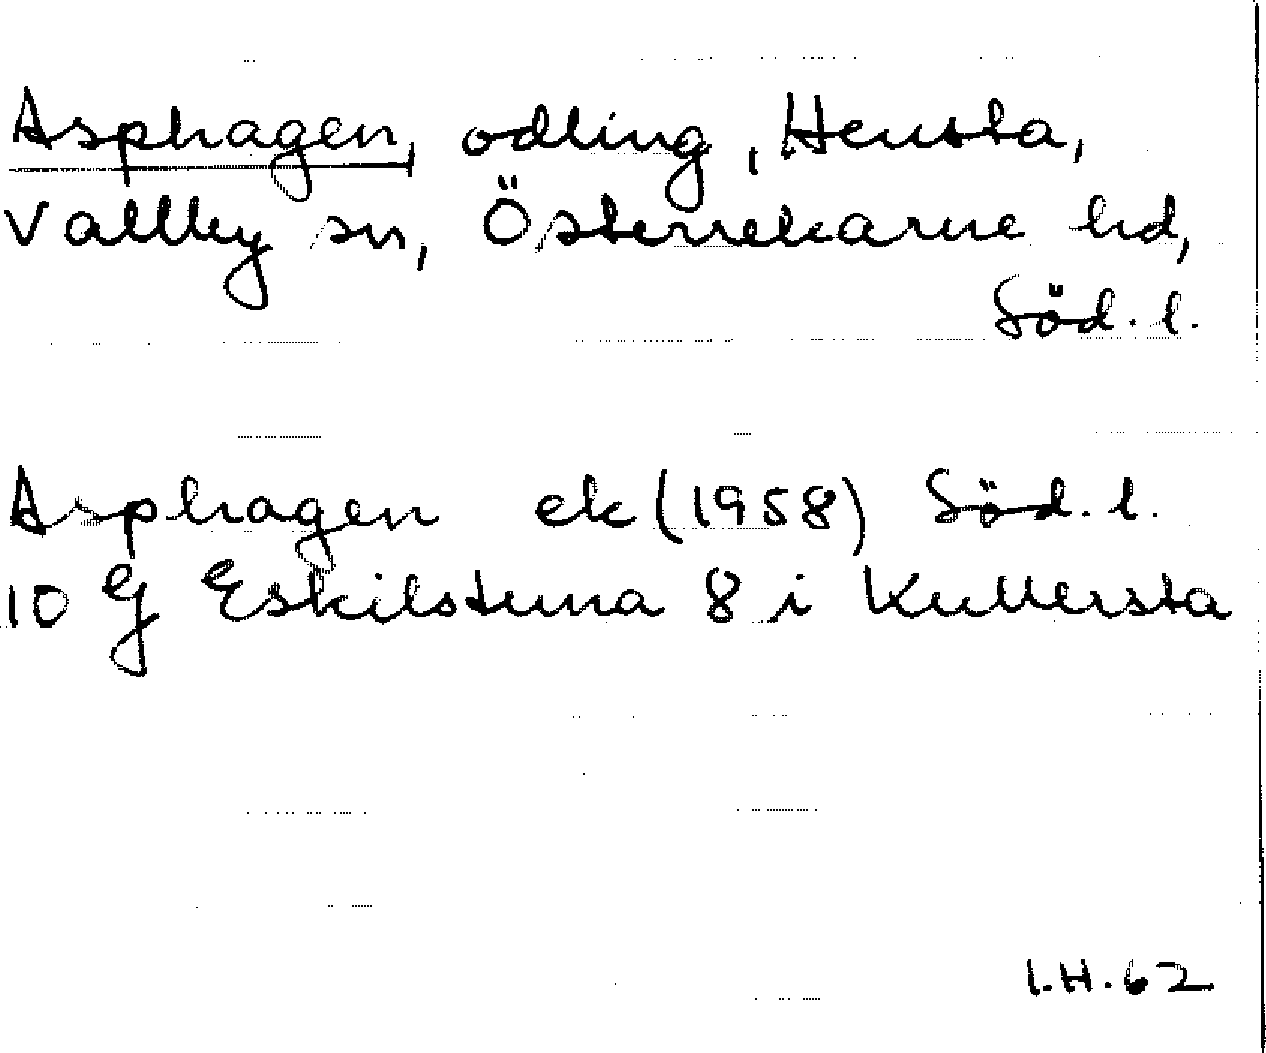 Asphagen, odling, Hensta,
Vallby sn, Österrekarne hd,
Söd. l.
Asphagen ek (1958) Söd. l.
10 G Eskilstuna 8 i Kullersta
I.H. 62